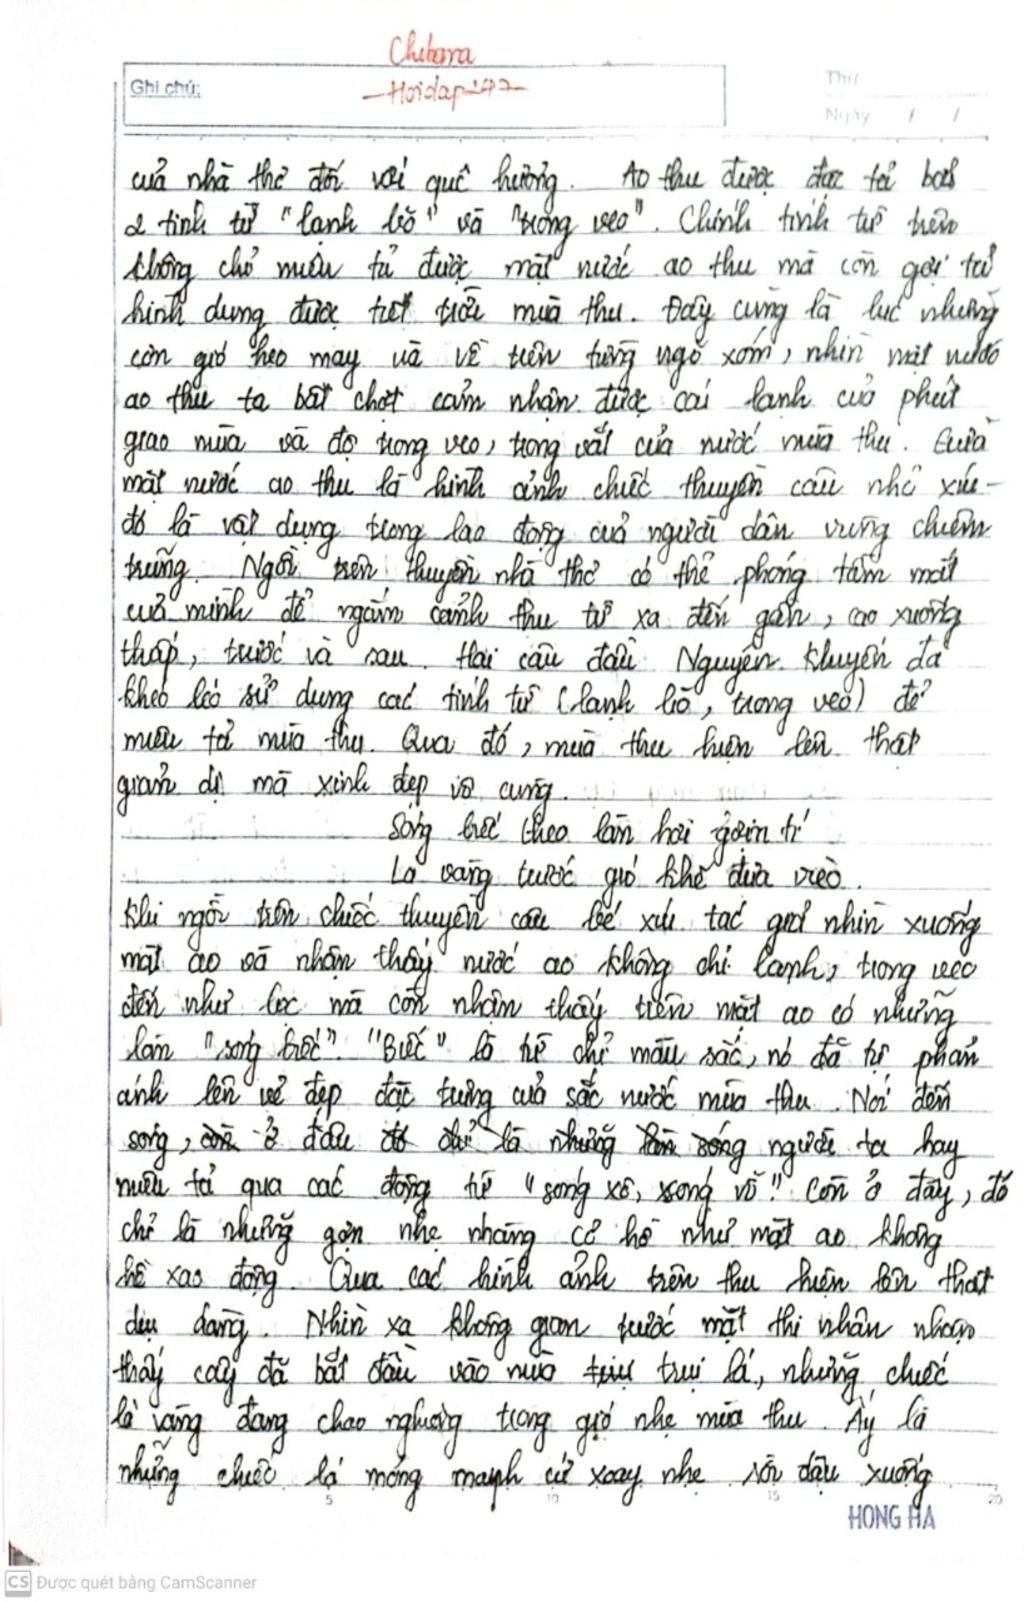 Chihara
Ghi chú:
-Hoidap247-
Thứ
Ngày / /
của nhà thơ đối với quê hương. Ao thu được đặc tả bởi
2 tính từ "lạnh lẽo" và "trong veo". Chính tính từ trên
không chỉ miêu tả được mặt nước ao thu mà còn gợi tả
hình dung được tiết trời mùa thu. Đây cũng là lúc những
cơn gió heo may ùa về trên từng ngõ xóm, nhìn mặt nước
ao thu ta bất chợt cảm nhận được cái lạnh của phút
giao mùa và độ trong veo, trong vắt của nước mùa thu. Giữa
mặt nước ao thu là hình ảnh chiếc thuyền câu nhỏ xíu -
đó là vật dụng trong lao động của người dân vùng chiêm
trũng. Ngồi trên thuyền nhà thơ có thể phóng tầm mắt
của mình để ngắm cảnh thu từ xa đến gần, cao xuống
thấp, trước và sau. Hai câu đầu Nguyễn Khuyến đã
khéo léo sử dụng các tính từ (lạnh lẽo, trong veo) để
miêu tả mùa thu. Qua đó, mùa thu hiện lên thật
giản dị mà xinh đẹp vô cùng.
Sóng biếc theo làn hơi gợn tí
Lá vàng trước gió khẽ đưa vèo.
Khi ngồi trên chiếc thuyền câu bé xíu tác giả nhìn xuống
mặt ao và nhận thấy nước ao không chỉ lạnh, trong veo
đến như lọc mà còn nhận thấy trên mặt ao có những
làn "sóng biếc". "Biếc" là từ chỉ màu sắc, nó đã tự phản
ánh lên vẻ đẹp đặc trưng của sắc nước mùa thu. Nói đến
sóng, còn ở đâu đó chỉ là những làn sóng người ta hay
miêu tả qua các động từ "sóng xô, sóng vỗ". Còn ở đây, đó
chỉ là những gợn nhẹ nhàng cơ hồ như mặt ao không
hề xao động. Qua các hình ảnh trên thu hiện lên thật
dịu dàng. Nhìn xa không gian trước mặt thi nhân nhận
thấy cây đã bắt đầu vào mùa trụi trụi lá, những chiếc
lá vàng đang chao nghiêng trong gió nhẹ mùa thu. Ấy là
những chiếc lá mỏng manh cứ xoay nhẹ rồi đậu xuống
5 10 15 20
HONG HA
CS Được quét bằng CamScanner